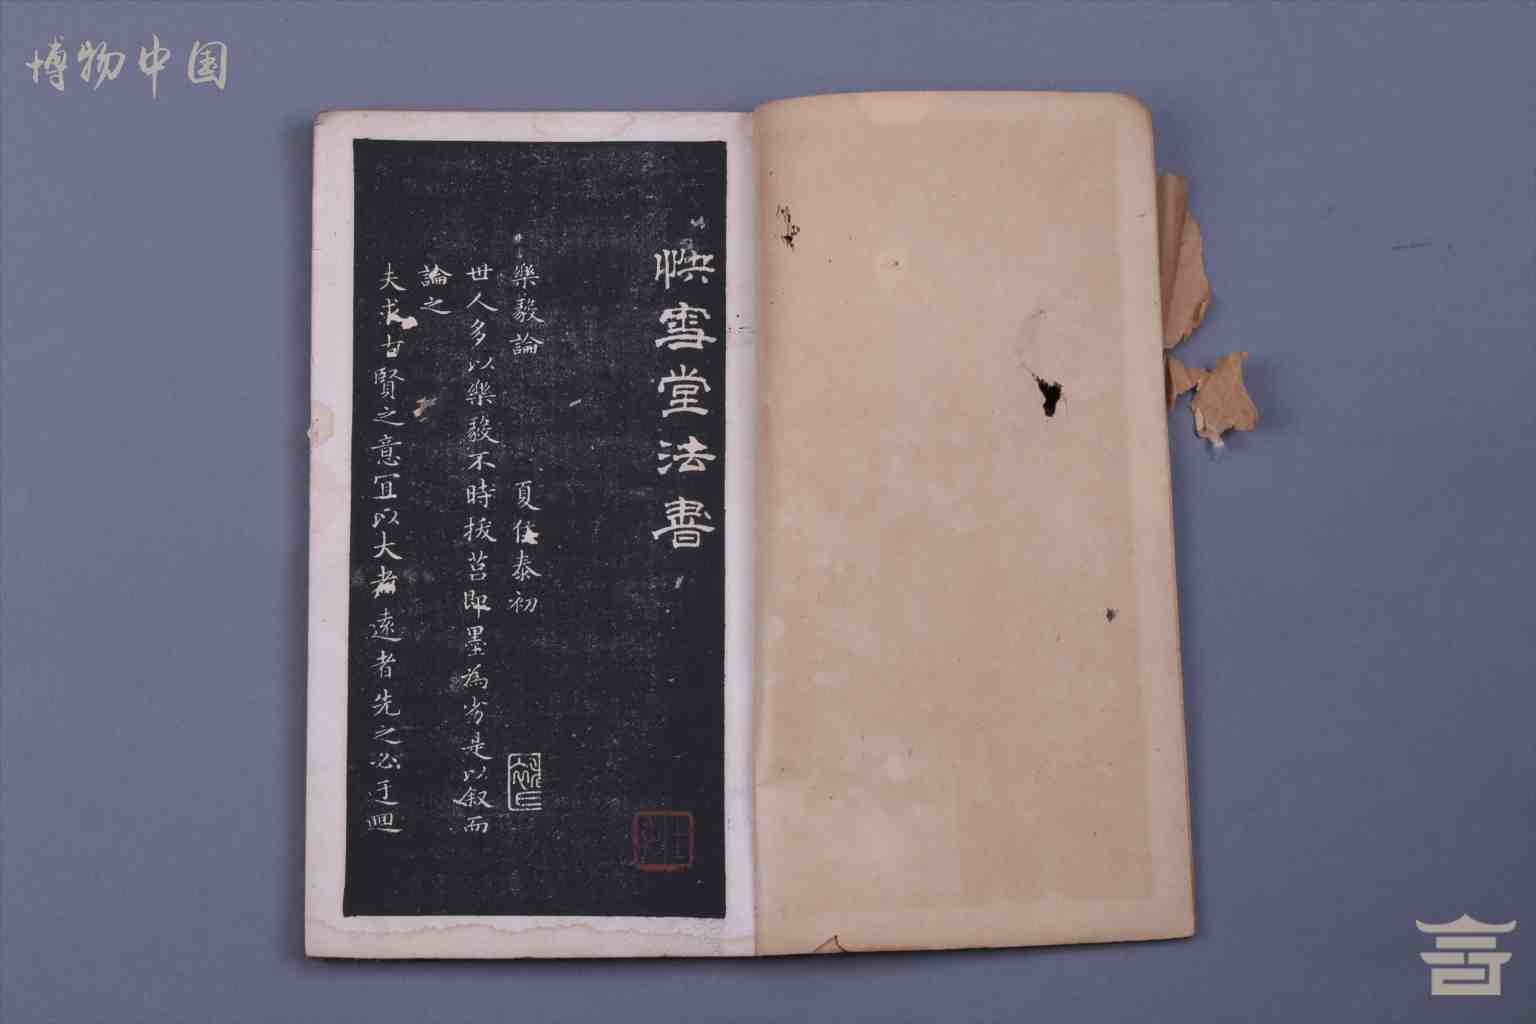 博物中国
快雪堂法書
樂毅論 夏侯泰初
世人多以樂毅不時拔莒即墨為劣是以叙而
論之
夫求古賢之意宜以大者遠者先之必迂迴